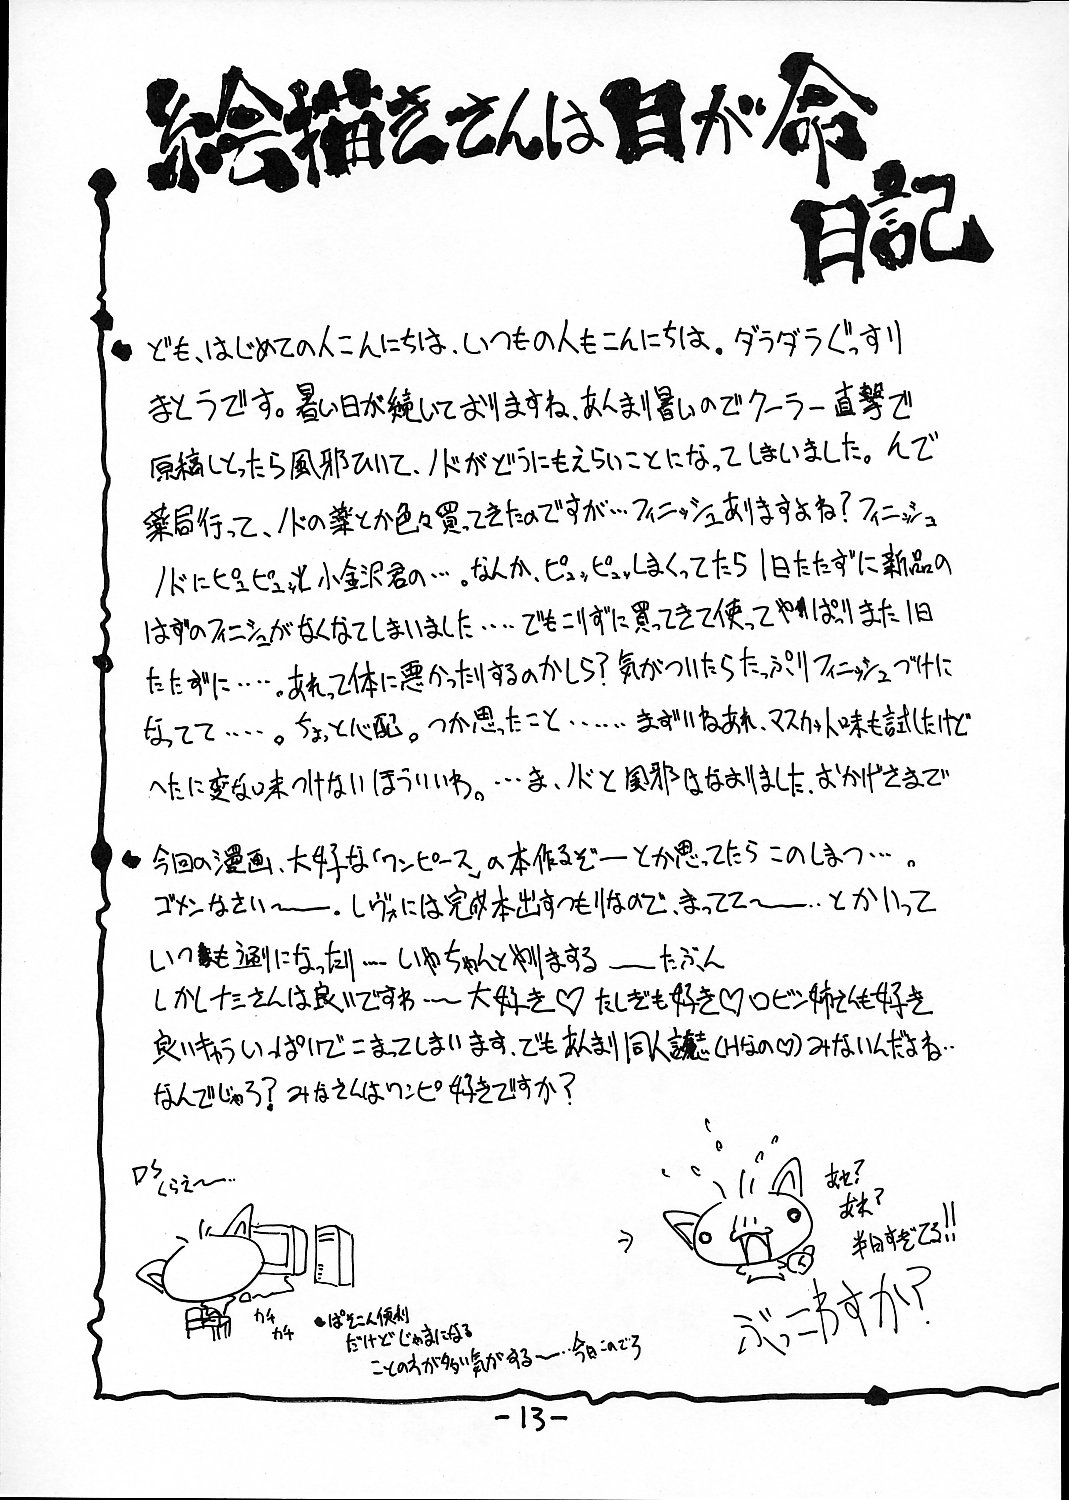 絵描きさんは目が命
日記
ども、はじめての人こんにちは、いつもの人もこんにちは。ダラダラぐっすり
まとうです。暑い日が続いておりますね、あんまり暑いのでクーラー直撃で
原稿しとったら風邪ひいて、ノドがどうにもえらいことになってしまいました。んで
薬局行って、ノドの薬とか色々買ってきたのですが…フィニッシュありますよね？フィニッシュ
ノドにピュピュッと小金沢君の…。なんか、ピュッピュッしまくってたら1日たたずに新品の
はずのフィニシュがなくなてしまいました‥‥でもこりずに買ってきて使ってやっぱりまた1日
たたずに‥‥。あれって体に悪かったりするのかしら？気がついたらたっぷりフィニッシュづけに
なってて‥‥。ちょっと心配。つか思ったこと‥‥‥まずいねあれ、マスカット味も試したけど
へたに変な味つけないほういいわ。…ま、ノドと風邪はなおりました、おかげさまで
今回の漫画、大好な「ワンピース」の本作るぞーとか思ってたらこのしまつ…。
ゴメンなさい〜ー。レヴォには完成本出すつもりなので、まってて〜ー‥とかいって
いつも通りになったり‥‥いやちゃんとやりまする ーたぶん
しかしナミさんは良いですわ〜大好き♡たしぎも好き♡ロビン姉さんも好き
良いきゃらいっぱいでこまってしまいます、でもあんまり同人誌（Hなの♡）みないんだよね‥
なんでじゃろ？みなさんはワンピ好きですか？
くらえ〜‥
カチ
カチ
ぱそこん便利
だけどじゃまになる
ことのおが多い気がする〜‥今日このごろ
あれ？
あれ？
半日すぎてる!!
ぶっこわすか？
-13-